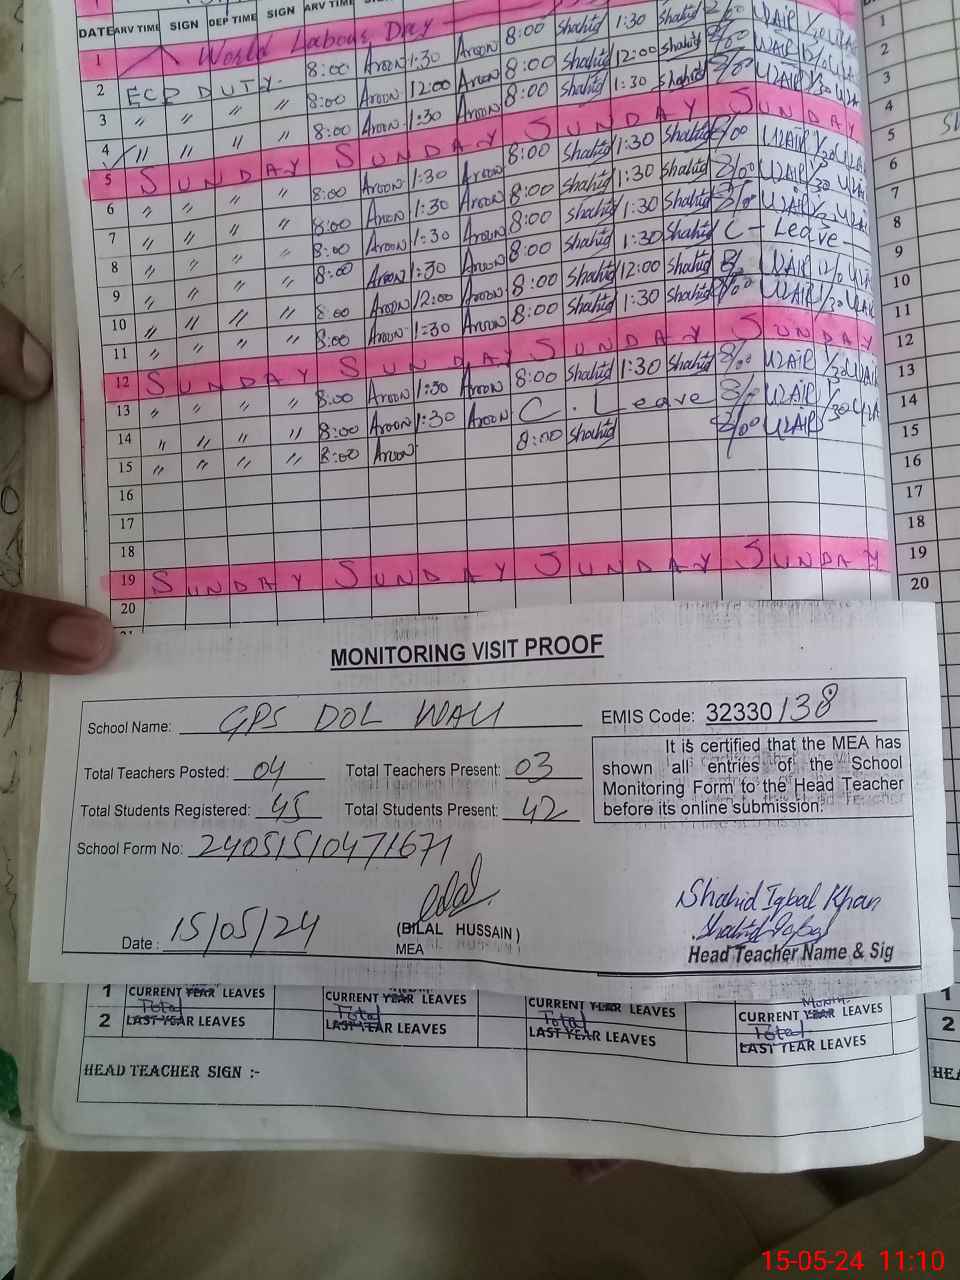 DATE ARV TIME SIGN DEP TIME SIGN ARV TIME
1 World Labour Day 8:00 Shahid 1:30 Shahid
2 ECP DUTY. 8:00 Aroon 1:30 Aroon 8:00 Shahid 12:00 Shahid 8/00 UZAIR
3 " " " " 8:00 Aroon 12:00 Aroon 8:00 Shahid 1:30 Shahid 8/00 UZAIR
4 " " " " 8:00 Aroon 1:30 Aroon
5 SUNDAY SUNDAY SUNDAY SUNDAY
6 " " " " 8:00 Aroon 1:30 Aroon 8:00 Shahid 1:30 Shahid 8/00 UZAIR 1/30
7 " " " " 8:00 Aroon 1:30 Aroon 8:00 Shahid 1:30 Shahid 8/00 UZAIR 1/30
8 " " " " 8:00 Aroon 1:30 Aroon 8:00 Shahid 1:30 Shahid C - Leave
9 " " " " 8:00 Aroon 1:30 Aroon 8:00 Shahid 12:00 Shahid UZAIR
10 " " " " 8:00 Aroon 12:00 Aroon 8:00 Shahid 1:30 Shahid 8/00 UZAIR 1/30
11 " " " " 8:00 Aroon 1:30 Aroon
12 SUNDAY SUNDAY SUNDAY SUNDAY
13 " " " " 8:00 Aroon 1:30 Aroon 8:00 Shahid 1:30 Shahid 8/00 UZAIR 1/30
14 " " " " 8:00 Aroon 1:30 Aroon C. Leave UZAIR 1/30
15 " " " " 8:00 Aroon 8:00 Shahid 8/00 UZAIR
16
17
18
19 SUNDAY SUNDAY SUNDAY SUNDAY
20
1
2
3
4
5
6
7
8
9
10
11
12
13
14
15
16
17
18
19
20
MONITORING VISIT PROOF
School Name: GPS DOL WALI EMIS Code: 32330138
Total Teachers Posted: 04 Total Teachers Present: 03
Total Students Registered: 45 Total Students Present: 42
It is certified that the MEA has
shown all entries of the School
Monitoring Form to the Head Teacher
before its online submission.
School Form No: 24051510471671
Shahid Iqbal Khan
Shahid Iqbal
Date : 15/05/24 (BILAL HUSSAIN)
MEA
Head Teacher Name & Sig
1 CURRENT YEAR LEAVES CURRENT YEAR LEAVES CURRENT YEAR LEAVES CURRENT YEAR LEAVES
Total Total Total Total
2 LAST YEAR LEAVES LAST YEAR LEAVES LAST YEAR LEAVES LAST YEAR LEAVES
HEAD TEACHER SIGN :-
1
2
HEA
15-05-24 11:10